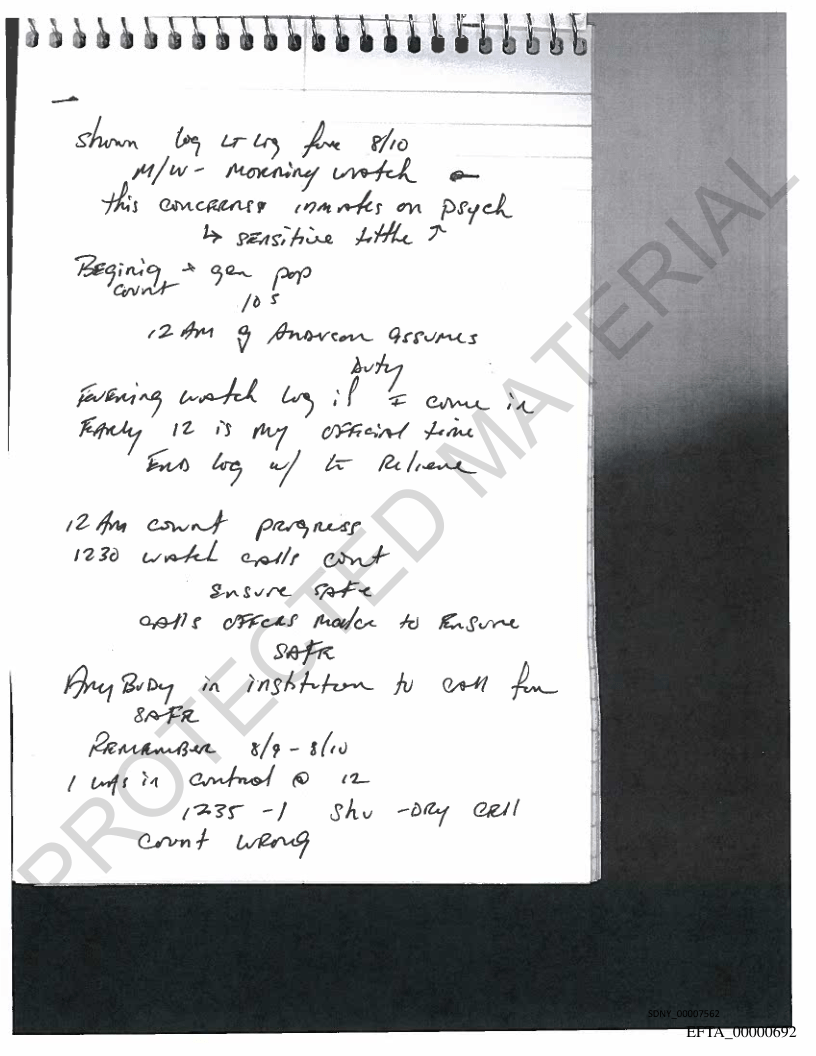 Shown log LT Log for 8/10
M/W - Morning watch
this concerns inmates on psych
↳ sensitive little ↑
Begining + gen pop
count
10 s
12 Am assumes
Duty
Evening watch log if I come in
Early 12 is my official time
End log w/ Lt Relieve
12 Am count progress
1230 watch calls cont
Ensure safe
calls officers make to Ensure
SAFE
Any Body in institution to call for
SAFE
Remember 8/9 - 8/10
I was in control @ 12
1235 - 1 Shu - Dry Cell
count wrong
PROTECTED MATERIAL
SDNY_00007562
EFTA_00000692